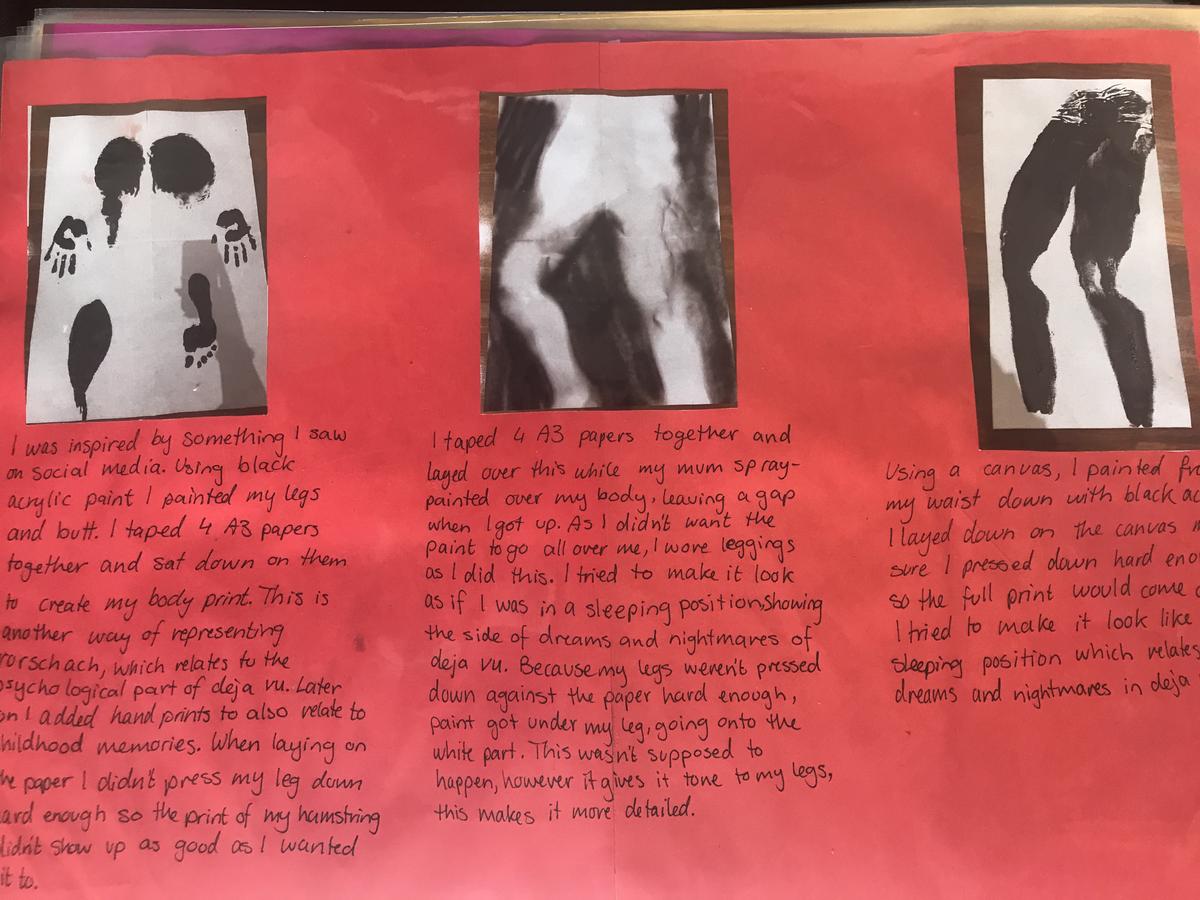 I was inspired by something I saw
on social media. Using black
acrylic paint I painted my legs
and butt. I taped 4 A3 papers
together and sat down on them
to create my body print. This is
another way of representing
rorschach, which relates to the
psychological part of deja vu. Later
on I added hand prints to also relate to
childhood memories. When laying on
the paper I didn't press my leg down
hard enough so the print of my hamstring
didn't show up as good as I wanted
it to.
I taped 4 A3 papers together and
layed over this while my mum spray-
painted over my body, leaving a gap
when I got up. As I didn't want the
paint to go all over me, I wore leggings
as I did this. I tried to make it look
as if I was in a sleeping position, showing
the side of dreams and nightmares of
deja vu. Because my legs weren't pressed
down against the paper hard enough,
paint got under my leg, going onto the
white part. This wasn't supposed to
happen, however it gives it tone to my legs,
this makes it more detailed.
Using a canvas, I painted
my waist down with black
I layed down on the canvas
sure I pressed down hard
so the full print would
I tried to make it look like
sleeping position which relates
dreams and nightmares in deja